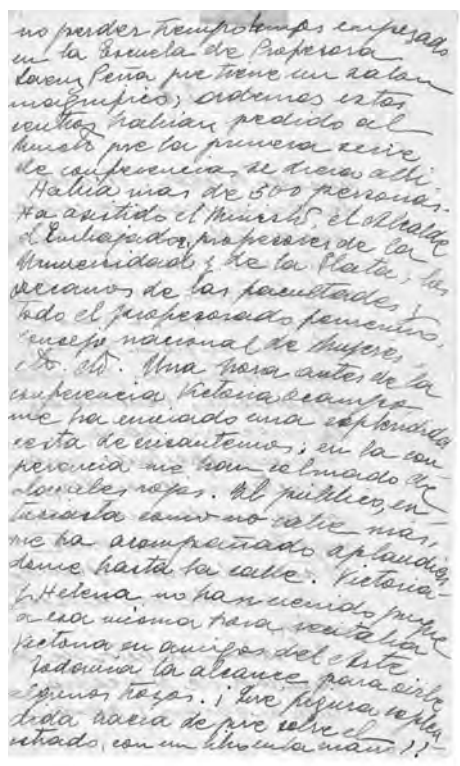 no perder tiempo hemos empezado
en la Escuela de Profesora
Saenz Pena que tiene un salon
magnifico; ademas estos
centros habian pedido al
Minist.º que la primera serie
de conferencias se diera alli.
Habia mas de 500 personas.
Ha asistido el Ministro, el Alcalde
el Embajador, profesores de la
Universidad y de la Plata; los
decanos de las facultades y
todo el profesorado femenino,
Consejo nacional de Mujeres
etc. etc. Una hora antes de la
conferencia Victoria Ocampo
me ha enviado una esplendida
cesta de crisantemos; en la con
ferencia me han colmado de
claveles rojos. El publico, en
tusiasta como no cabe mas,
me ha acompañado aplaudien
dome hasta la calle. Victoria
y Helena no han venido porque
a esa misma hora recitaba
Victoria en amigos del Arte
Todavia la alcance para oirle
algunos trozos. ¡Que figura esplen
dida hacia de pie sobre el
estrado, con un libro en la mano!!